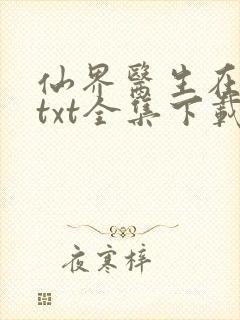 仙界醫生在
txt全集下載
夜寒梓